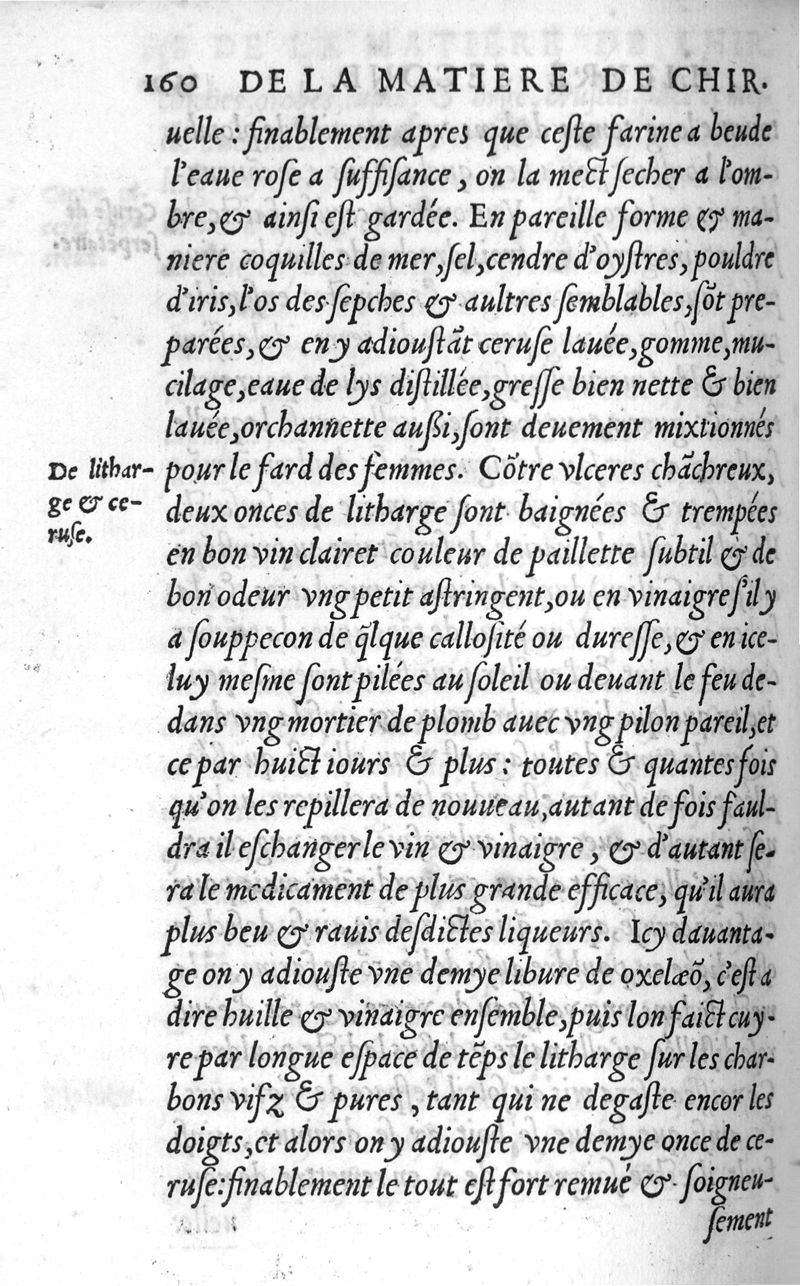 160 DE LA MATIERE DE CHIR.
uelle : finablement apres que ceſte farine a beude
l'eaue roſe a ſuffiſance, on la mect ſecher a l'om-
bre, & ainſi eſt gardée. En pareille forme & ma-
niere coquilles de mer, ſel, cendre d'oyſtres, pouldre
d'iris, l'os des ſepches & aultres ſemblables, ſõt pre-
parées, & en y adiouſtãt ceruſe lauée, gomme, mu-
cilage, eaue de lys diſtillée, greſſe bien nette & bien
lauée, orchannette auſſi, ſont deuement mixtionnés
pour le fard des femmes. Cõtre vlceres chãchreux,
De lithar-
ge & ce-
ruſe.
deux onces de litharge ſont baignées & trempées
en bon vin clairet couleur de paillette ſubtil & de
bon odeur vng petit aſtringent, ou en vinaigre ſ'il y
a ſouppecon de q̃lque calloſité ou dureſſe, & en ice-
luy meſme ſont pilées au ſoleil ou deuant le feu de-
dans vng mortier de plomb auec vng pilon pareil, et
ce par huict iours & plus : toutes & quantes fois
qu'on les repillera de nouueau, autant de fois faul-
dra il eſchanger le vin & vinaigre, & d'autant ſe-
ra le medicament de plus grande efficace, qu'il aura
plus beu & rauis deſdictes liqueurs. Icy dauanta-
ge on y adiouſte vne demye libure de oxelæõ, c'eſt a
dire huille & vinaigre enſemble, puis lon faict cuy-
re par longue eſpace de tẽps le litharge ſur les char-
bons vifz & pures, tant qui ne degaſte encor les
doigts, et alors on y adiouſte vne demye once de ce-
ruſe: finablement le tout eſt fort remué & ſoigneu-
ſement